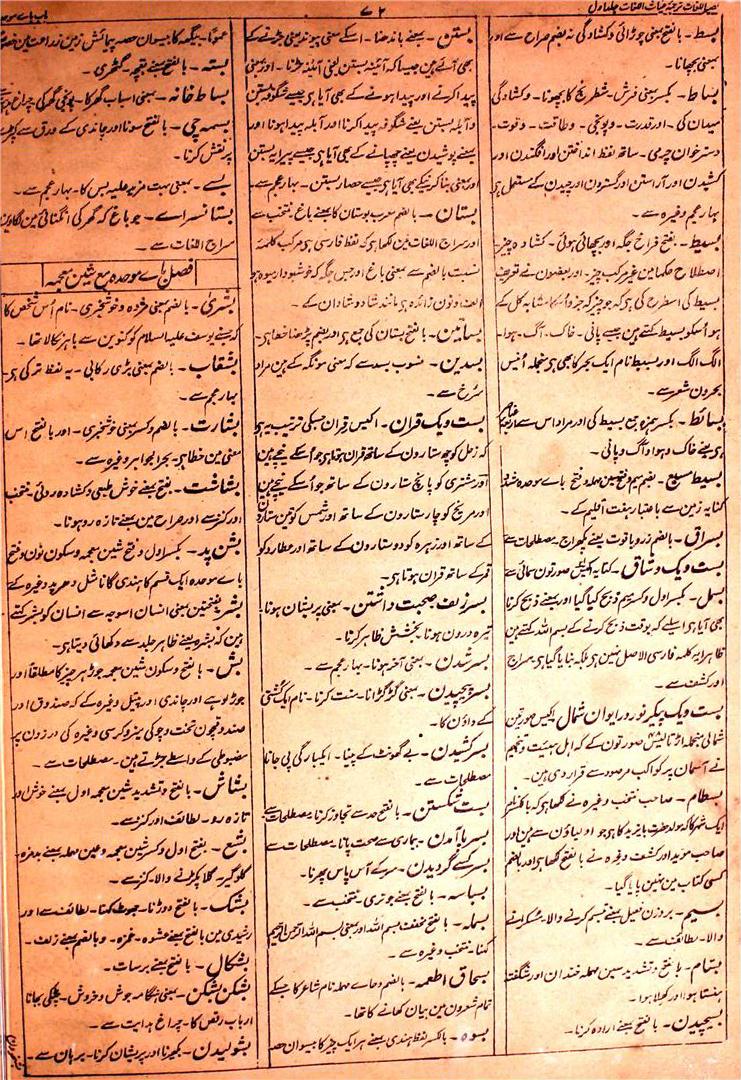 نصیر اللغات ترجمہ غیاث اللغات جلد اول
۷۲
باب بائے موحدہ
بسط۔ بالفتح بمعنی چوڑائی وکشادگی نہ بضم صراح سے اور
بمعنی بچھانا۔
بساط۔ بکسر بمعنی فرش۔ شطرنج کا بچھونا۔ وکشادگی
میدان کی۔ اور قدرت۔ وپونجی۔ وطاقت۔ وقوت۔
دسترخوان چرمی۔ ساتھ لفظ انداختن اور افگندن اور
کشیدن اور آراستن اور گستردن اور چیدن کے مستعمل ہی
بہار عجم وغیرہ سے۔
بسیط۔ بالفتح فراخ جگہ اور بچھائی ہوئی۔ کشادہ چیز۔
اصطلاح حکما میں غیر مرکب چیز۔ اور بعضوں نے تعریف
بسیط کی اسطرح کی ہی کہ جو چیز کہ جزو اُسکا مشابہ کل کے
ہو اُسکو بسیط کہتے ہین جیسے پانی۔ خاک۔ آگ۔ ہوا۔
الگ الگ اور بسیط نام ایک بحر کا بھی ہی منجملہ اُنیس
بحرون شعر سے۔
بسائط۔ بکسر ہمزہ جمع بسیط کی اور مراد اس سے اربعہ عناصر
ہی یعنے خاک وہوا وآگ وپانی۔
بسیط مسبع۔ بضم میم وفتح سین مہملہ وفتح بائے موحدہ مشدد
کنایہ زمین سے باعتبار ہفت اقلیم کے۔
بسراق۔ بالضم زرد یاقوت یعنے پکھراج۔ مصطلحات سے
بست ویک وشاق۔ کنایہ اکیس صورتون شمالی سے
بسمل۔ بکسر اول وکسر میم ذبح کیا گیا اور بمعنے ذبح کرنا
بھی آیا ہی اسلئے کہ بوقت ذبح کرنے کے بسم اللہ کہتے ہین
ظاہرا یہ کلمہ فارسی الاصل نہین ہی بلکہ بنایا گیا ہی سراج
اور کشف سے۔
بست ویک پیکر نور در ایوان شمال اکیس صورتین
شمالی منجملہ اڑتالیس صورتون کے کہ اہل ہیئت وتنجیم
نے آسمان پر کواکب مرصود سے قرار دی ہین۔
بسطام۔ صاحب منتخب وغیرہ نے لکھا ہی کہ بالکسر نام
ایک شہر کا کہ مولد حضرت بایزید کا ہی جو اولیاؤن سے ہین اور
صاحب موید اور کشف وغیرہ نے بالفتح لکھا ہی اور بالضم
کسی کتاب مین نہین پایا گیا۔
بسیم۔ بروزن فعیل یعنے تبسم کرنے والا۔ مسکرانے
والا۔ لطائف سے۔
بسام۔ بالفتح وتشدید سین مہملہ خندان اور شگفتہ
ہنستا ہوا اور کھلا ہوا۔
بسیچیدن۔ بالفتح بمعنے ارادہ کرنا۔
بستن۔ یعنے باندھنا۔ اسکے معنی پیوند یعنی جڑنے کے
بھی آئے ہین جیسا کہ آئینہ بستن یعنی آئینہ جڑنا۔ اور بمعنی
پیدا کرنے اور پیدا ہونے کے بھی آیا ہی جیسے شگوفہ بستن
وآبلہ بستن یعنے شگوفہ پیدا کرنا اور آبلہ پیدا ہونا اور
یعنے پوشیدن یعنے چھپانے کے بھی آیا ہی جیسے پیرایہ بستن
اور بمعنی بنا کرنیکے بھی آیا ہی جیسے حصار بستن۔ بہار عجم سے۔
بستان۔ بالضم معرب بوستان کا بمعنے باغ۔ منتخب سے
اور سراج اللغات مین لکھا ہی کہ لفظ فارسی ہی مرکب کلمہ
نسبت بالضم سے بمعنی باغ اور جس جگہ کہ خوشبو دار میوہ ہو
الف ونون زائد ہی مانند شاد وشادان کے۔
بساتین۔ بالفتح بستان کی جمع ہی اور بضم پڑھنا خطا ہی۔
بسدین۔ منسوب بسد سے کہ معنی مونگہ کے ہین مراد
سرخ سے۔
بست ویک قران۔ اکیس قران جسکی ترتیب یہ ہی
کہ زحل کو چھ ستارون کے ساتھ قران ہوتا ہی جو اُسکے نیچے ہین
اور مشتری کو پانچ ستارون کے ساتھ جو اُسکے نیچے ہین
اور مریخ کو چار ستارون کے ساتھ اور شمس کو تین ستارون
کے ساتھ اور زہرہ کو دو ستارون کے ساتھ اور عطارد کو
قمر کے ساتھ قران ہوتا ہی۔
بسر زلف صحبت داشتن۔ بمعنی پریشان ہونا۔
تیرہ درون ہونا۔ بخشش ظاہر کرنا۔
بسر شدن۔ بمعنی آخر ہونا۔ بہار عجم سے۔
بسر پیچیدن۔ بمعنی گڑگڑانا۔ منت کرنا۔ نام ایک کشتی
کے داؤن کا۔
بسر کشیدن۔ بے گھونٹ کے پینا۔ اکبارگی پی جانا
مصطلحات سے۔
بست شکستن۔ بالفتح حد سے تجاوز کرنا۔ مصطلحات سے۔
بسر پا آمدن۔ بیماری سے صحت پانا۔ مصطلحات سے
بسر کسے گردیدن۔ سر کے آس پاس پھرنا۔
بسباسہ۔ بالفتح بمعنے جوتری۔ منتخب سے۔
بسملہ۔ بالفتح مخفف بسم اللہ اور بمعنی بسم اللہ الرحمن الرحیم
کہنا۔ منتخب وغیرہ سے۔
بسحاق اطعمہ۔ بالضم وحاے مہملہ نام شاعر کا جسکے
تمام شعرون مین بیان کھانے کا تھا۔
بسوہ۔ بالکسر لفظ ہندی یعنے ہر ایک چیز کا بیسوان حصہ
عموماً۔ بیگہ کا بیسوان حصہ پیمائش زمین زراعت مین خصوصاً
بستہ۔ بالفتح بمعنے بقچہ۔ گٹھری۔
بساط خانہ۔ بمعنی اسباب گھر کا۔ پونجی گھر کی چراغ ہدایت سے
بسمہ چی۔ بالفتح سونا اور چاندی کے ورق سے کپڑے
پر نقش کرنا۔
بسے۔ بمعنی بہت مزید علیہ بس کا۔ بہار عجم سے۔
بستان سراے۔ جو باغ کہ گھر کی انگنائی مین لگاوین
سراج اللغات سے۔
فصل باے موحدہ مع شین معجمہ
بشریٰ۔ بالضم بمعنی مژدہ وخوشخبری۔ نام اُس شخص کا
کہ جسنے یوسف علیہ السلام کو کنوین سے باہر نکالا تھا۔
بشقاب۔ بالضم بمعنی بڑی رکابی۔ یہ لفظ ترکی ہی۔
بہار عجم سے۔
بشارت۔ بالضم وکسر بمعنی خوشخبری۔ اور بالفتح اس
معنی مین خطا ہی۔ بحر الجواہر وغیرہ سے۔
بشاشت۔ بفتح بمعنے خوش طبعی وکشادہ روئی۔ منتخب
اور کنز سے اور صراح مین بمعنے تازہ رو ہونا۔
بشن پد۔ بکسر اول وفتح شین معجمہ وسکون نون وفتح
باے موحدہ ایک قسم کا ہندی گانا مثل دھرپد وغیرہ کے
بشر بفتحتین بمعنی انسان اسوجہ سے انسان کو بشر کہتے
ہین کہ بشرہ یعنے ظاہر جلد سے دکھائی دیتا ہی۔
بش۔ بالفتح وسکون شین معجمہ جوڑ ہر چیز کا مطلقا اور
جوڑ لوہے اور چاندی اور پیتل وغیرہ کے کہ صندوق اور
صندوقچون تخت وچوکی ومیز وکرسی وغیرہ کی درزون پر
مضبوطی کے واسطے جڑتے ہین۔ مصطلحات سے۔
بشاش۔ بالفتح وتشدید شین معجمہ اول بمعنے خوش اور
تازہ رو۔ لطائف اور کنز سے۔
بشع۔ بفتح اول وکسر شین معجمہ وعین مہملہ بمعنے بدمزہ۔
گلوگیر۔ گلا پکڑنے والا۔ کنز سے۔
بشک۔ بالفتح دوڑنا۔ جھوٹ کہنا۔ لطائف سے اور
رشیدی مین بالفتح بمعنے عشوہ۔ غمزہ۔ وبالضم بمعنے زلف۔
بشکال۔ بالفتح بمعنے برسات۔
بشکن بشکن۔ بمعنی ہنگامہ جوش وخروش۔ چٹکی بجانا
ارباب رقص کا۔ چراغ ہدایت سے۔
بشولیدن۔ بکھرنا اور پریشان کرنا۔ برہان سے۔